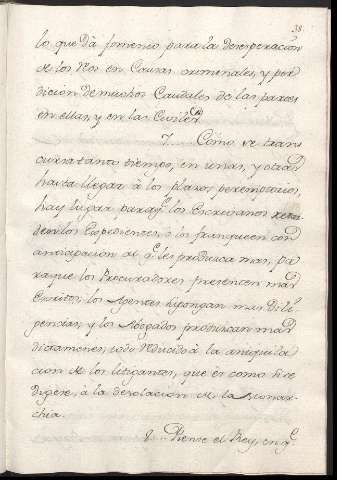 38.
lo que dà fomento para la desesperacion
de los Reos en Causas criminales, y per
dicion de muchos Caudales de las partes
en ellas, y en las Civiles.
7.... Como se trans
curra tanto tiempo, en unas, y otras
hasta llegar à los plazos perentorios,
hay lugar para q.e los Escrivanos
los Expedientes, ò los franqueen con
anticipacion al q.e les produzca mas, pa
ra que los Procuradores presenten mas
Escritos; los Agentes supongan mas dili
gencias, y los Abogados produzcan mas
dictamenes, todo reducido à la aniquila
cion de los litigantes, que es como si se
dixere, à la desolacion de la Monar
chia.
8... Piense el Rey, en q.e